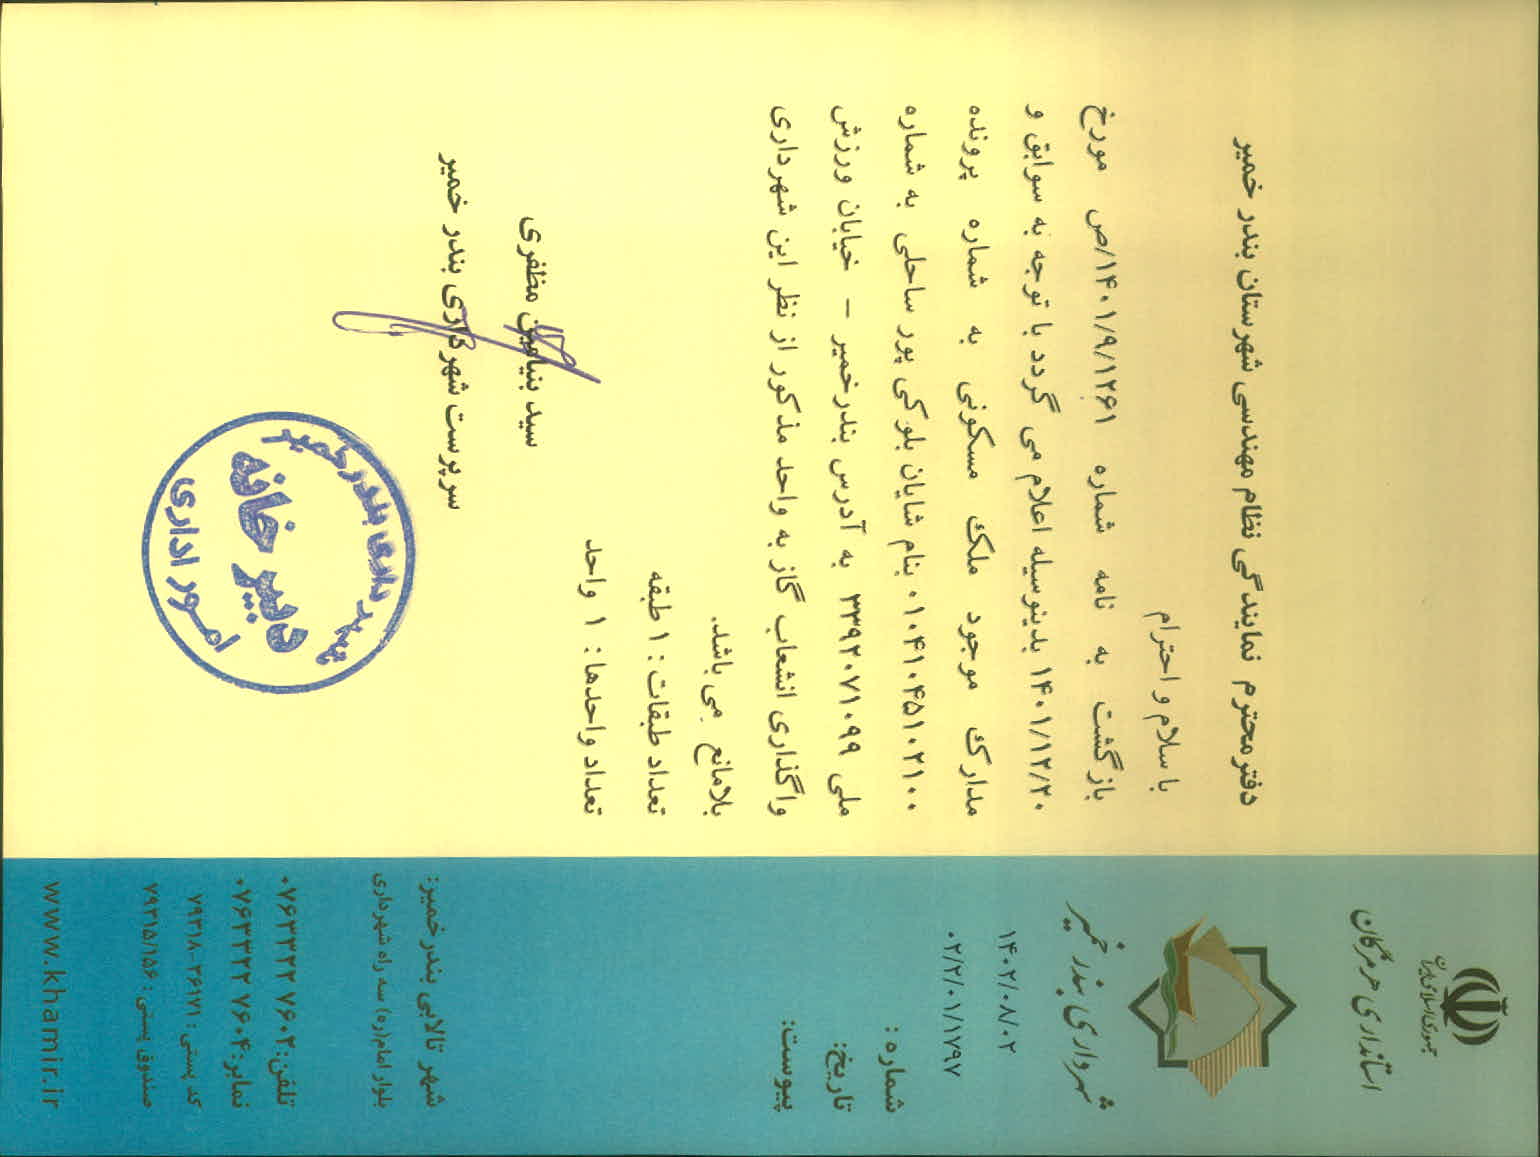 جمهوری اسلامی ایران
استانداری هرمزگان
شهرداری بندر خمیر
۱۴۰۲/۰۸/۰۲
۰۲/۲/۰۱/۱۷۹۷
شماره :
تاریخ:
پیوست:
دفتر محترم نمایندگی نظام مهندسی شهرستان بندر خمیر
با سلام و احترام
بازگشت به نامه شماره ۱۴۰۱/۹/۱۲۶۱/ص مورخ
۱۴۰۱/۱۲/۲۰ بدینوسیله اعلام می گردد با توجه به سوابق و
مدارک موجود ملک مسکونی به شماره پرونده
۰۱۰۴۱۰۴۵۱۰۲۱۰۰ بنام شایان بلوکی پور ساحلی به شماره
ملی ۳۳۹۲۰۷۱۰۹۹ به آدرس بندرخمیر – خیابان ورزش
واگذاری انشعاب گاز به واحد مذکور از نظر این شهرداری
بلامانع می باشد.
تعداد طبقات : ۱ طبقه
تعداد واحدها : ۱ واحد
سید بنیامین مظفری
سرپرست شهرداری بندر خمیر
شهرداری بندر خمیر
دبیرخانه
امور اداری
شهر تالابی بندرخمیر:
بلوار امام(ره) سه راه شهرداری
تلفن: ۰۷۶۳۳۳۲ ۷۶۰۲
نمابر: ۰۷۶۳۳۳۲ ۷۶۰۴
کد پستی : ۲۶۱۷۱-۷۹۳۱۸
صندوق پستی : ۷۹۳۱۵/۱۵۶
www.khamir.ir